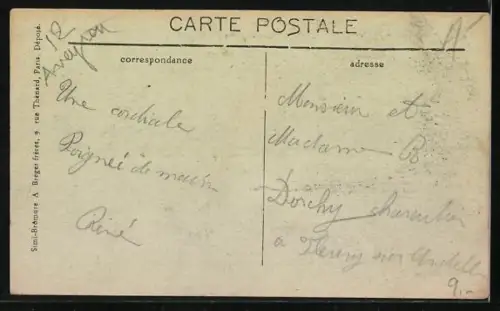 CARTE POSTALE
12
Aveyron
A
correspondance
adresse
Une cordiale
Poignée de main
René
Monsieur et
Madame B
Dorchy
a Fleury sur Andelle
9.-
Simi-Bromure A. Breger frères, 9 rue Thénard, Paris. Déposé.